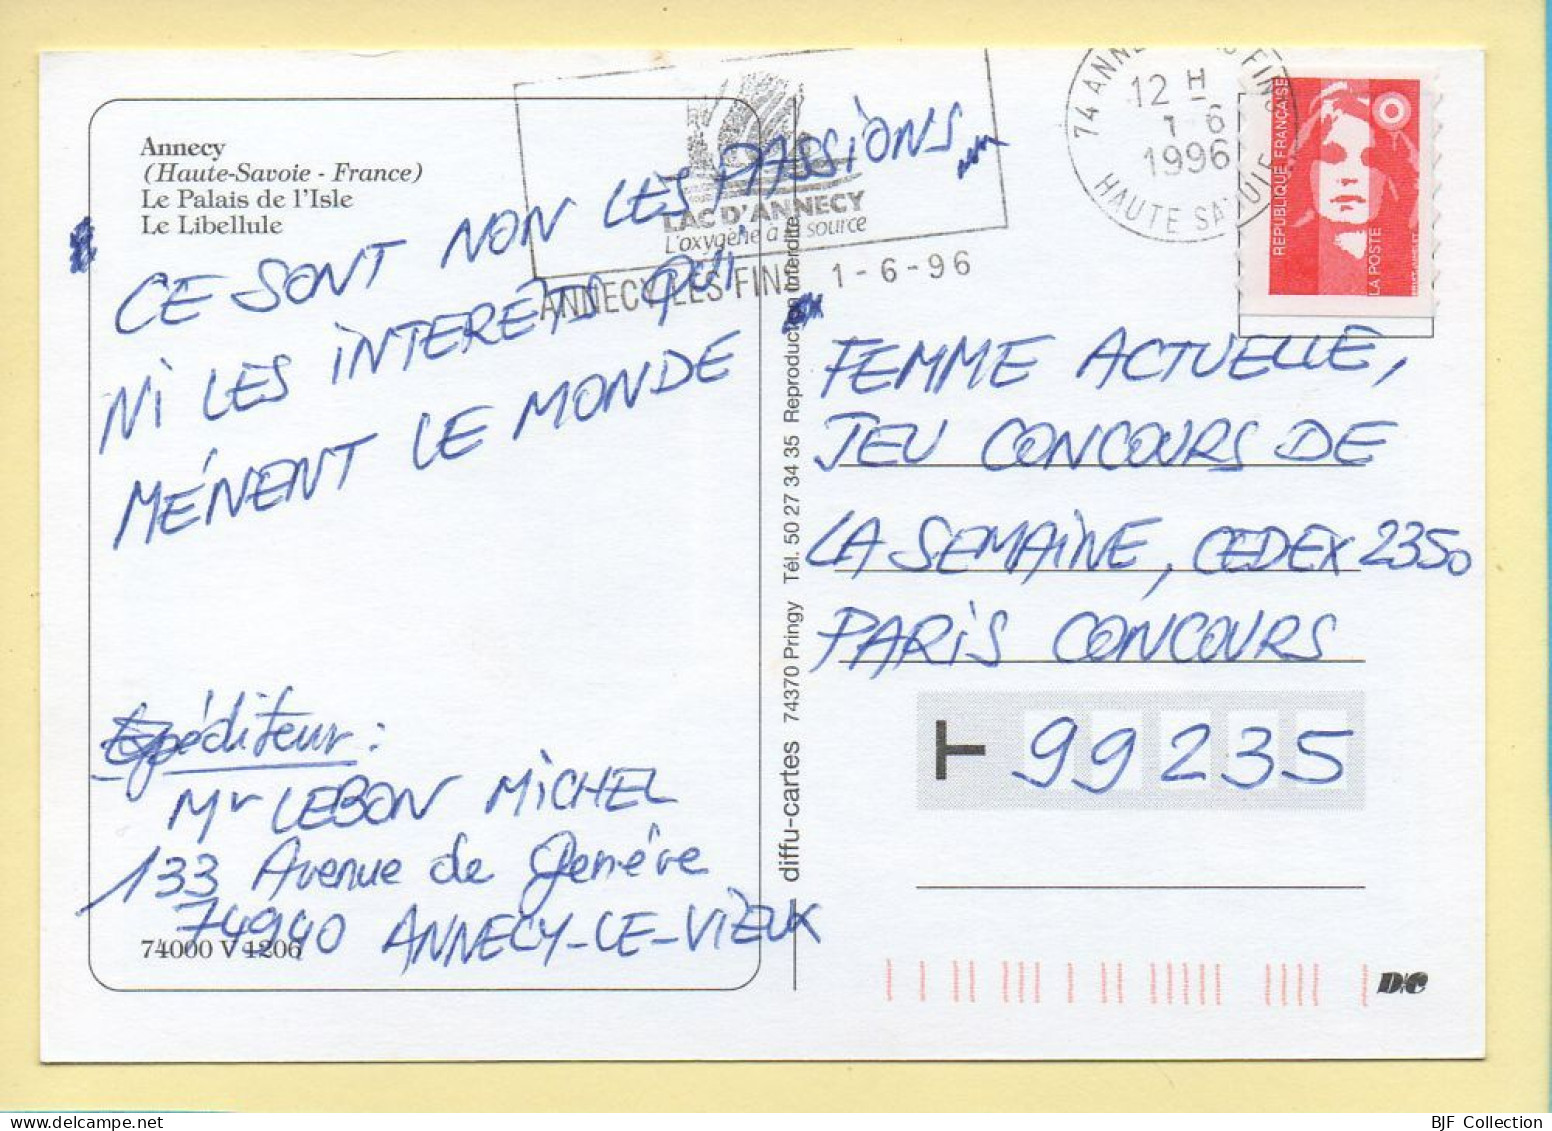 Annecy
(Haute-Savoie - France)
Le Palais de l'Isle
Le Libellule
CE SONT NON LES PASSIONS
NI LES INTERETS QUI
MÉNENT LE MONDE
Expéditeur :
Mr LEBON MICHEL
133 Avenue de Genève
74940 ANNECY-LE-VIEUX
74000 V 1206
LAC D'ANNECY
L'oxygène à la source
ANNECY LES FINS 1-6-96
12 H
1-6
1996
HAUTE SAVOIE
REPUBLIQUE FRANÇAISE
LA POSTE
diffu-cartes 74370 Pringy Tél. 50 27 34 35 Reproduction interdite
FEMME ACTUELLE,
JEU CONCOURS DE
LA SEMAINE, CEDEX 2350
PARIS CONCOURS
99235
D/C
BJF Collection